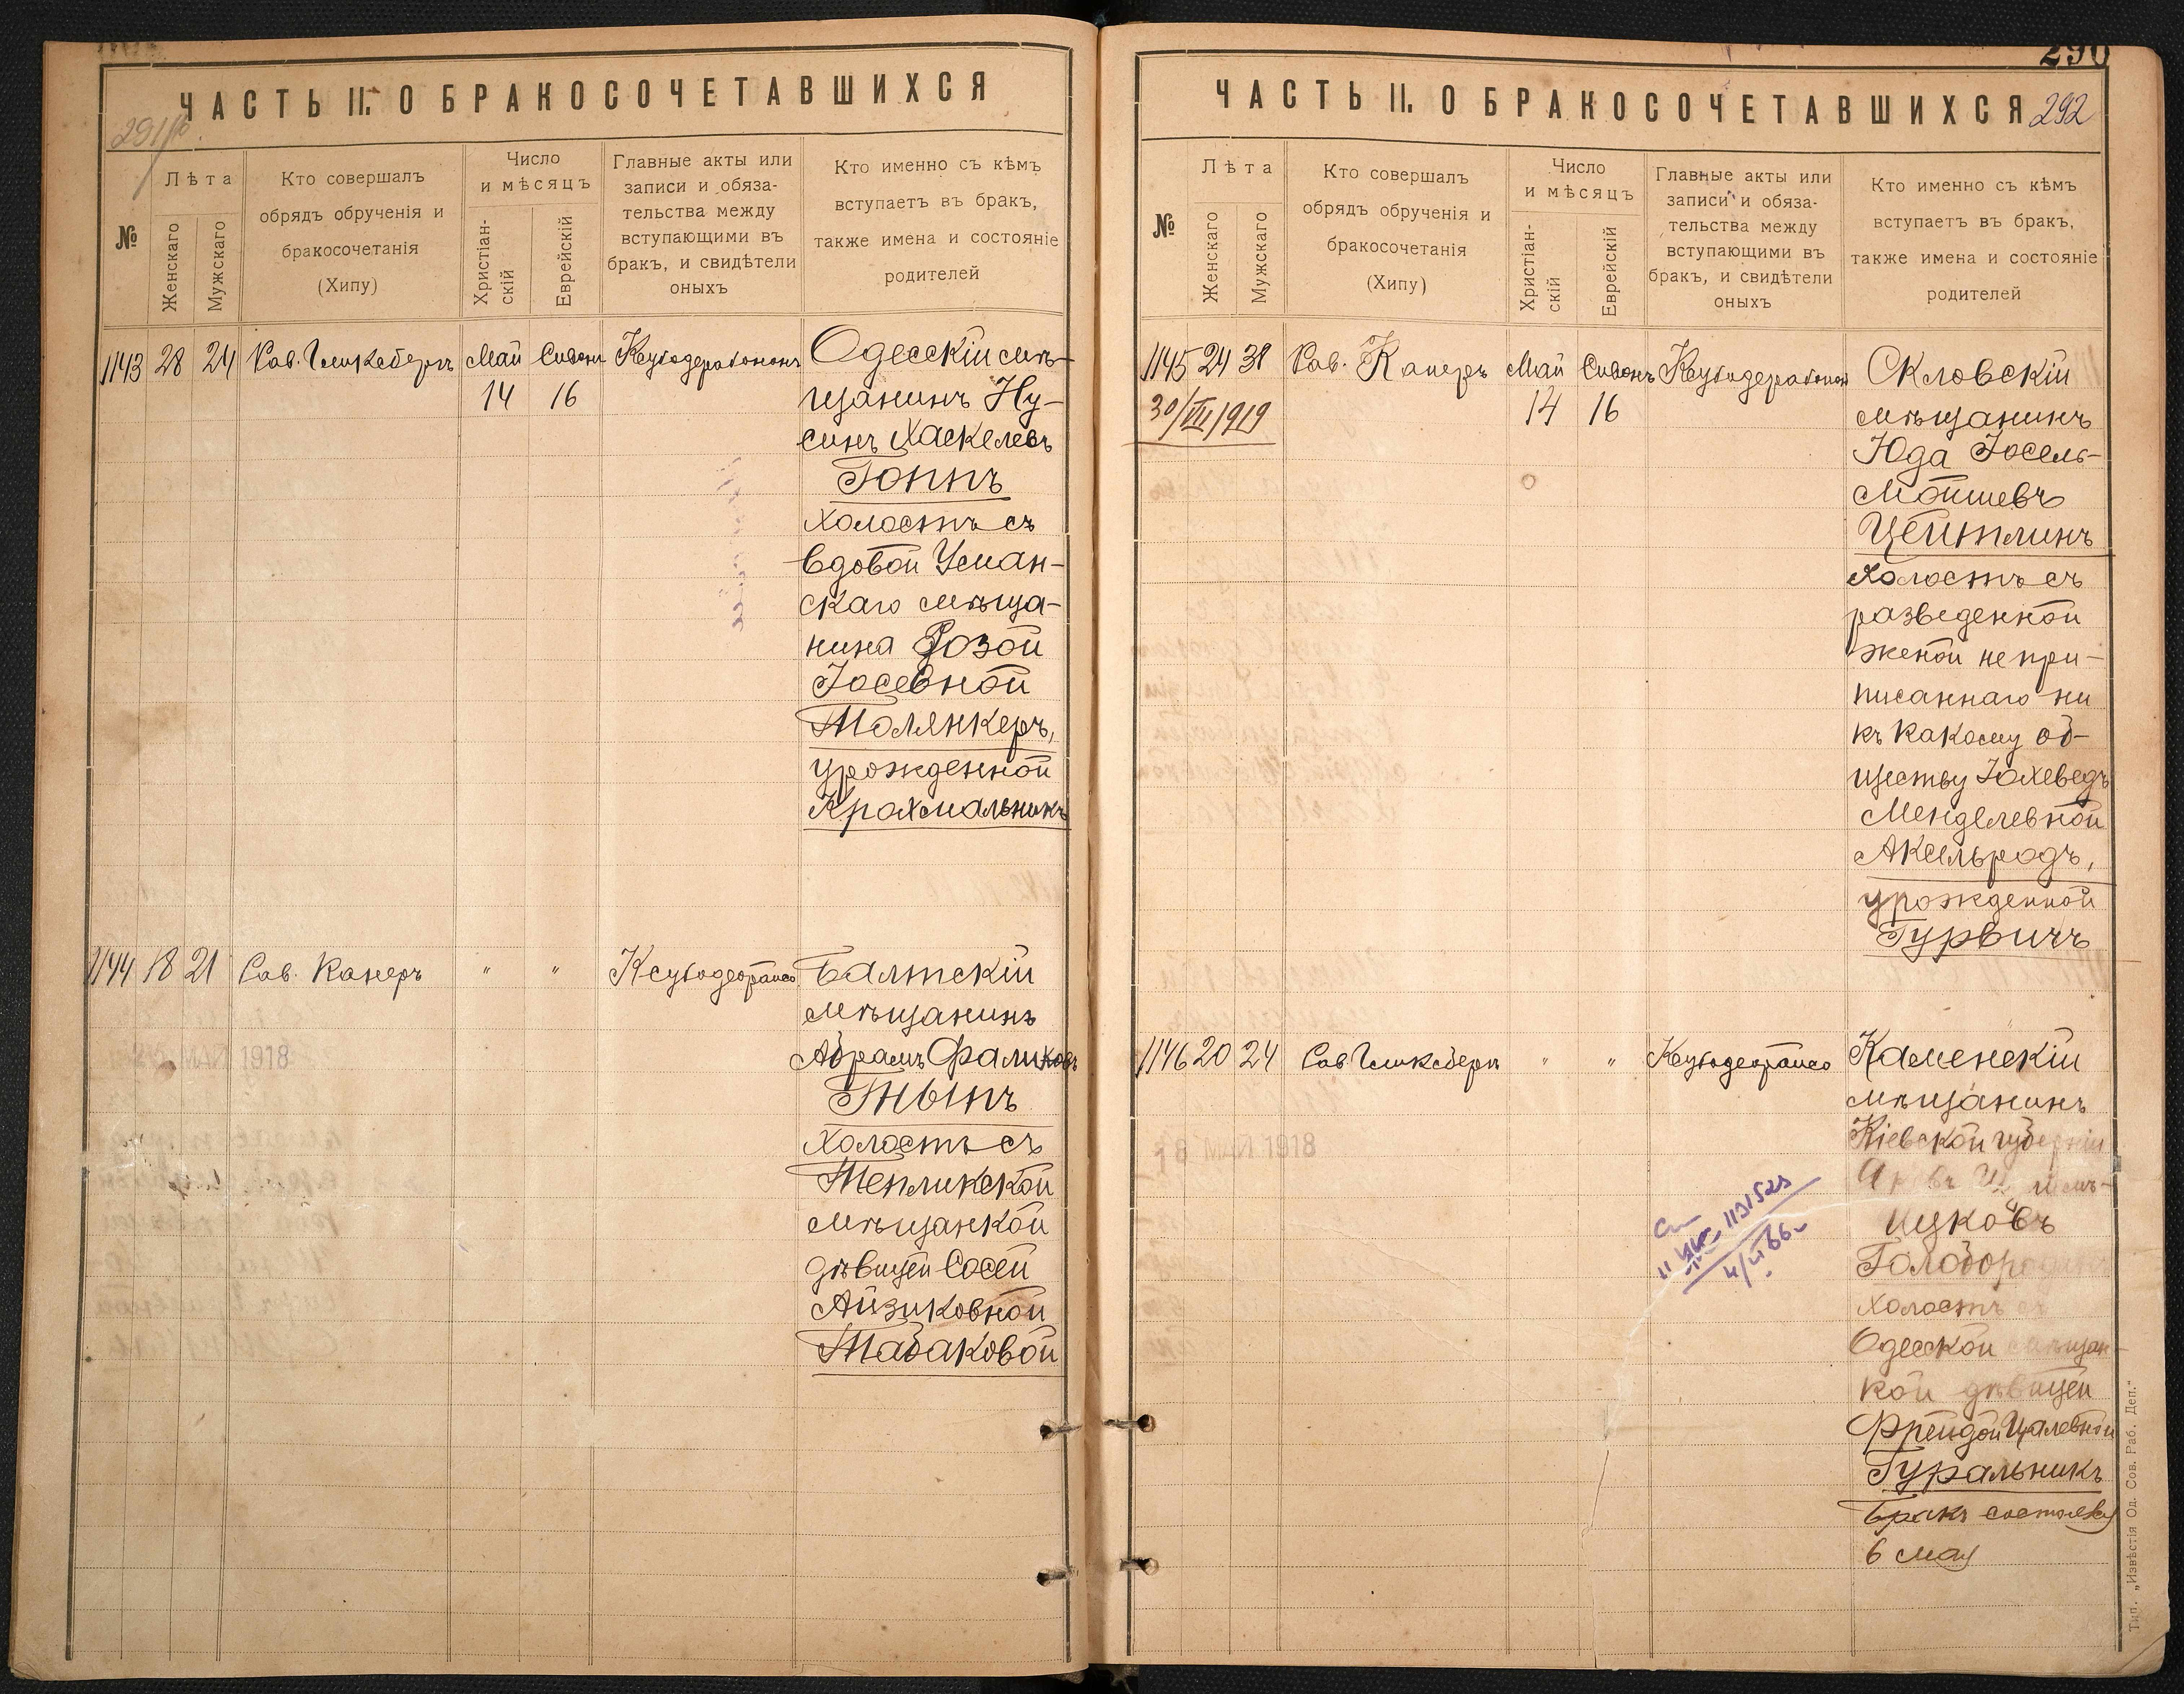 ЧАСТЬ II. О БРАКОСОЧЕТАВШИХСЯ
№
Лѣта
Женскаго
Мужскаго
Кто совершалъ
обрядъ обрученія и
бракосочетанія
(Хипу)
Число
и мѣсяцъ
Христіан-
скій
Еврейскій
Главные акты или
записи и обяза-
тельства между
вступающими въ
бракъ, и свидѣтели
оныхъ
Кто именно съ кѣмъ
вступаетъ въ бракъ,
также имена и состояніе
родителей
1143 28 24 Май Сивонъ
14 16
Одесскій мѣ-
щанинъ Ну-
синъ Хаскелевъ
Гоппъ
холостъ съ
вдовой Уман-
скаго мѣща-
нина Розой
Іосевной
Молянкеръ,
урожденной
Крахмальникъ
1144 18 21 Рав. Канеръ " "
Балтскій
мѣщанинъ
Абрамъ Фаликовъ
Тныпъ
холостъ съ
Тепликской
мѣщанкой
дѣвицей Сосей
Айзиковной
Табаковой
МАЙ 1918
290
ЧАСТЬ II. О БРАКОСОЧЕТАВШИХСЯ 292
№
Лѣта
Женскаго
Мужскаго
Кто совершалъ
обрядъ обрученія и
бракосочетанія
(Хипу)
Число
и мѣсяцъ
Христіан-
скій
Еврейскій
Главные акты или
записи и обяза-
тельства между
вступающими въ
бракъ, и свидѣтели
оныхъ
Кто именно съ кѣмъ
вступаетъ въ бракъ,
также имена и состояніе
родителей
1145 24 31 Рав. Канеръ Май Сивонъ
30/VII 1919 14 16
Скловскій
мѣщанинъ
Юда Іосель-
Мошевъ
Цейтлинъ
холостъ съ
разведенной
женой непри-
писаннаго ни
къ какому об-
ществу Іохеведъ
Менделевной
Аксельродъ,
урожденной
Гурвичъ
1146 20 24 " "
Каменскій
мѣщанинъ
Кіевской губерніи
ицковъ
холостъ съ
Одесской мѣщан-
кой дѣвицей
Фрейдой
Гуральникъ
Бракъ состоялся
6 мая
МАЙ 1918
Тип. „Извѣстія Од. Сов. Раб. Деп."